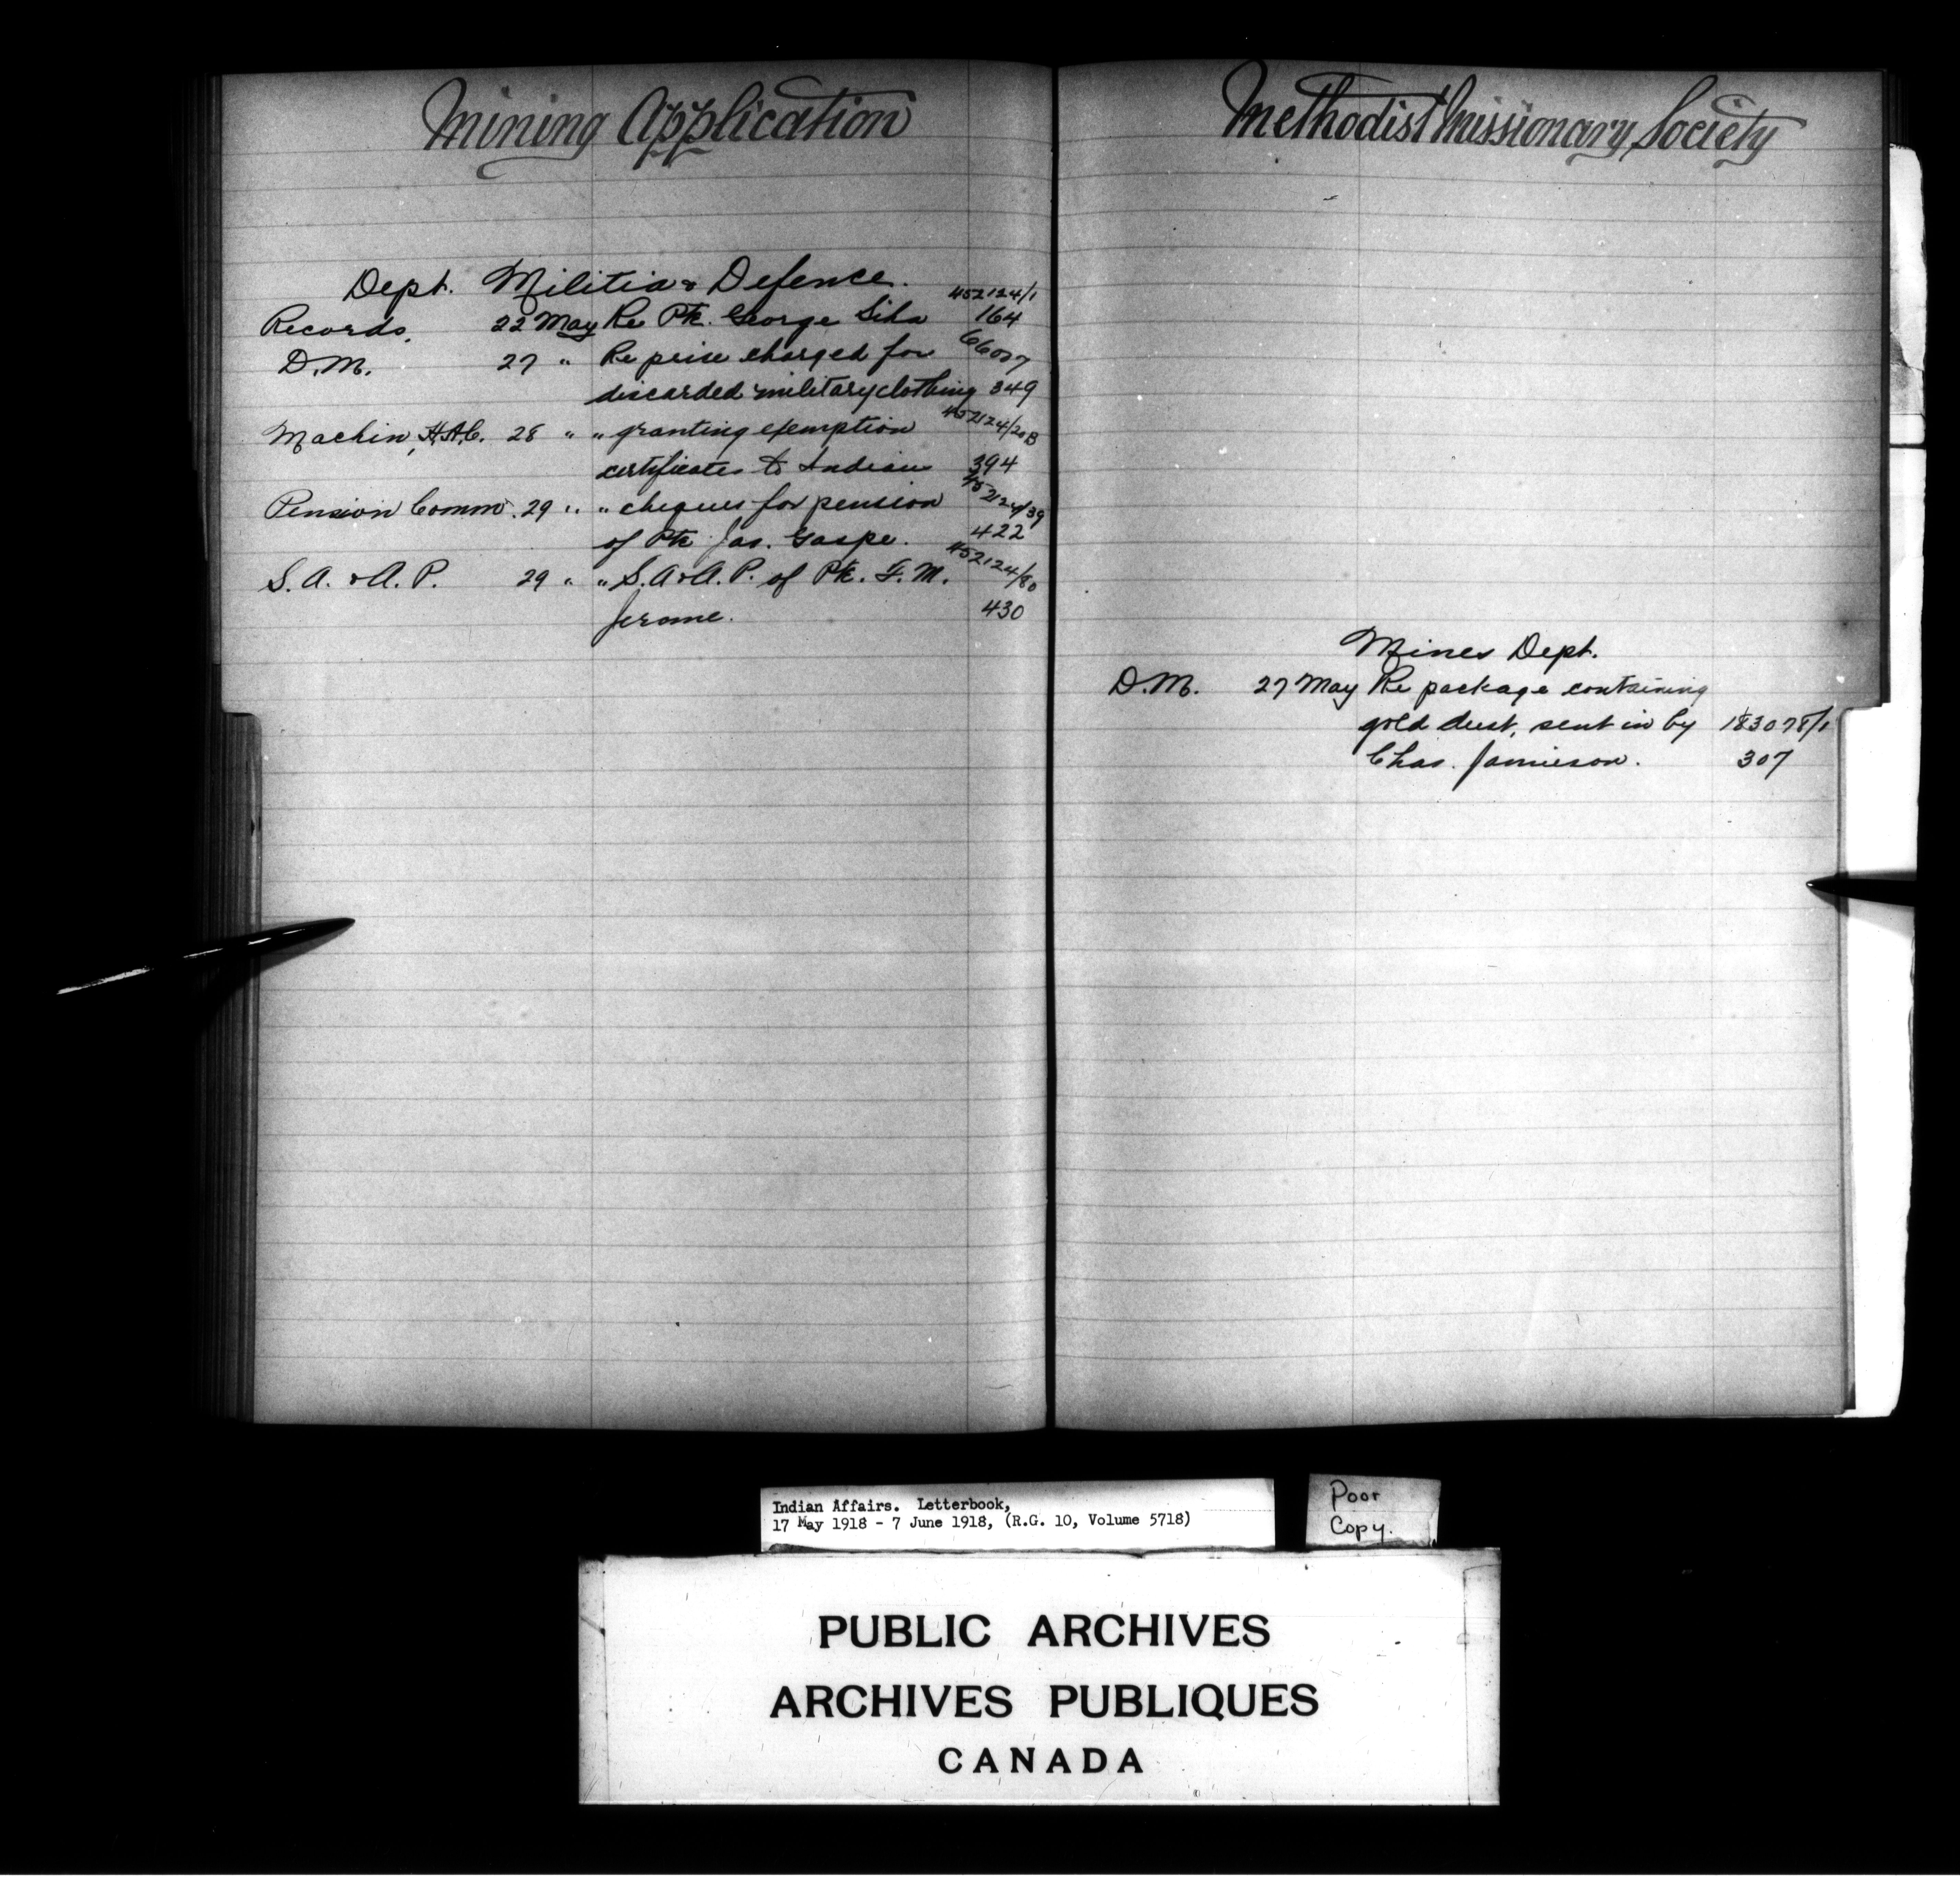 Mining Application
Dept. Militia & Defence.
452124/1
Records. 22 May Re Pte. George Siha 164
66007
D.M. 27 " Re price charged for
discarded military clothing 349
452124/20B
Machin, H.A.C. 28 " " granting exemption
certificates to Indian 394
452124/39
Pension Comm. 29 " " cheques for pension
of Pte Jas. Gaspe. 422
452124/80
S.A. & A.P. 29 " " S.A & A.P. of Pte. F.M.
Jerome. 430
Methodist Missionary Society
Mines Dept.
D.M. 27 May Re package containing
gold dust, sent in by 183078/1
Chas. Jamieson. 307
Indian Affairs. Letterbook,
17 May 1918 - 7 June 1918, (R.G. 10, Volume 5718)
Poor
Copy.
PUBLIC ARCHIVES
ARCHIVES PUBLIQUES
CANADA